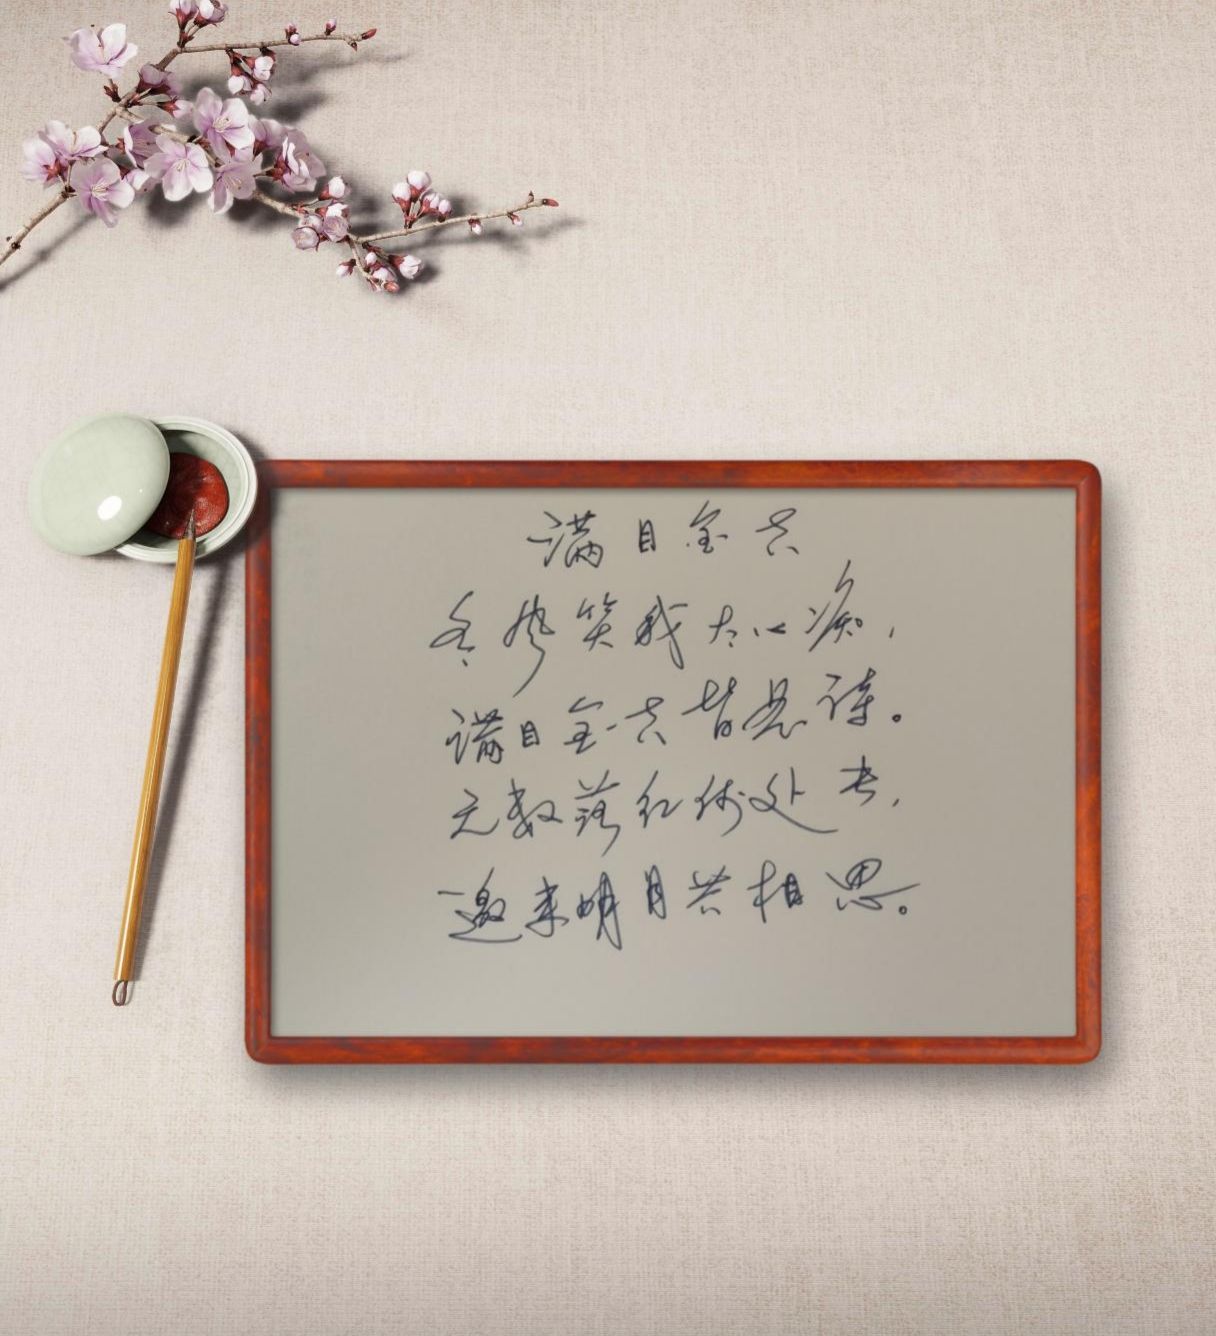 满目金黄
冬风笑我太心痴,
满目金黄皆是诗。
无数落红何处去,
邀来明月共相思。